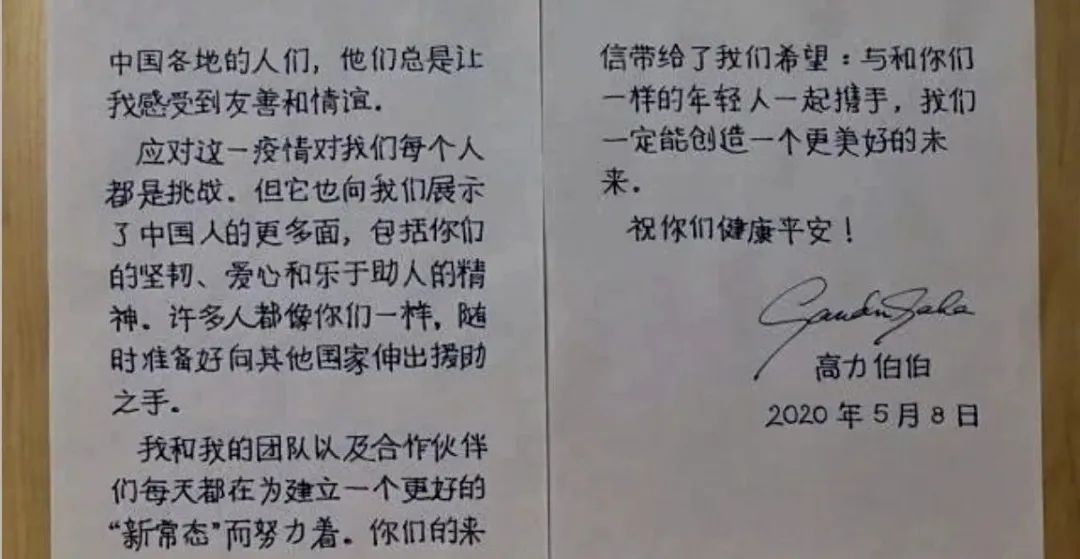 中国各地的人们，他们总是让
我感受到友善和情谊.
应对这一疫情对我们每个人
都是挑战.但它也向我们展示
了中国人的更多面，包括你们
的坚韧、爱心和乐于助人的精
神。许多人都像你们一样，随
时准备好向其他国家伸出援助
之手。
我和我的团队以及合作伙伴
们每天都在为建立一个更好的
“新常态”而努力着。你们的来
信带给了我们希望：与和你们
一样的年轻人一起携手，我们
一定能创造一个更美好的未
来。
祝你们健康平安！
高力伯伯
2020年5月8日